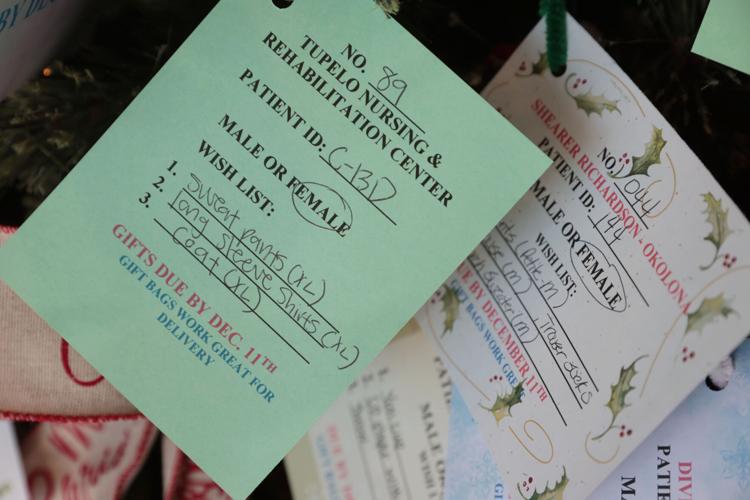 NO. 89
TUPELO NURSING &
REHABILITATION CENTER
PATIENT ID: G-BD
MALE OR FEMALE
WISH LIST:
1. Sweat pants (XL)
2. long sleeve shirts (XL)
3. Coat (XL)
GIFTS DUE BY DEC. 11TH
GIFT BAGS WORK GREAT FOR
DELIVERY
SHEARER RICHARDSON - OKOLONA
NO. 1044
PATIENT ID: 144
MALE OR FEMALE
WISH LIST:
(m) Trouser socks
sweater (m)
DUE BY DECEMBER 11TH
GIFT BAGS WORK GRE
MALE OR
1.
2.
GIFT
DIV
PATIE
M